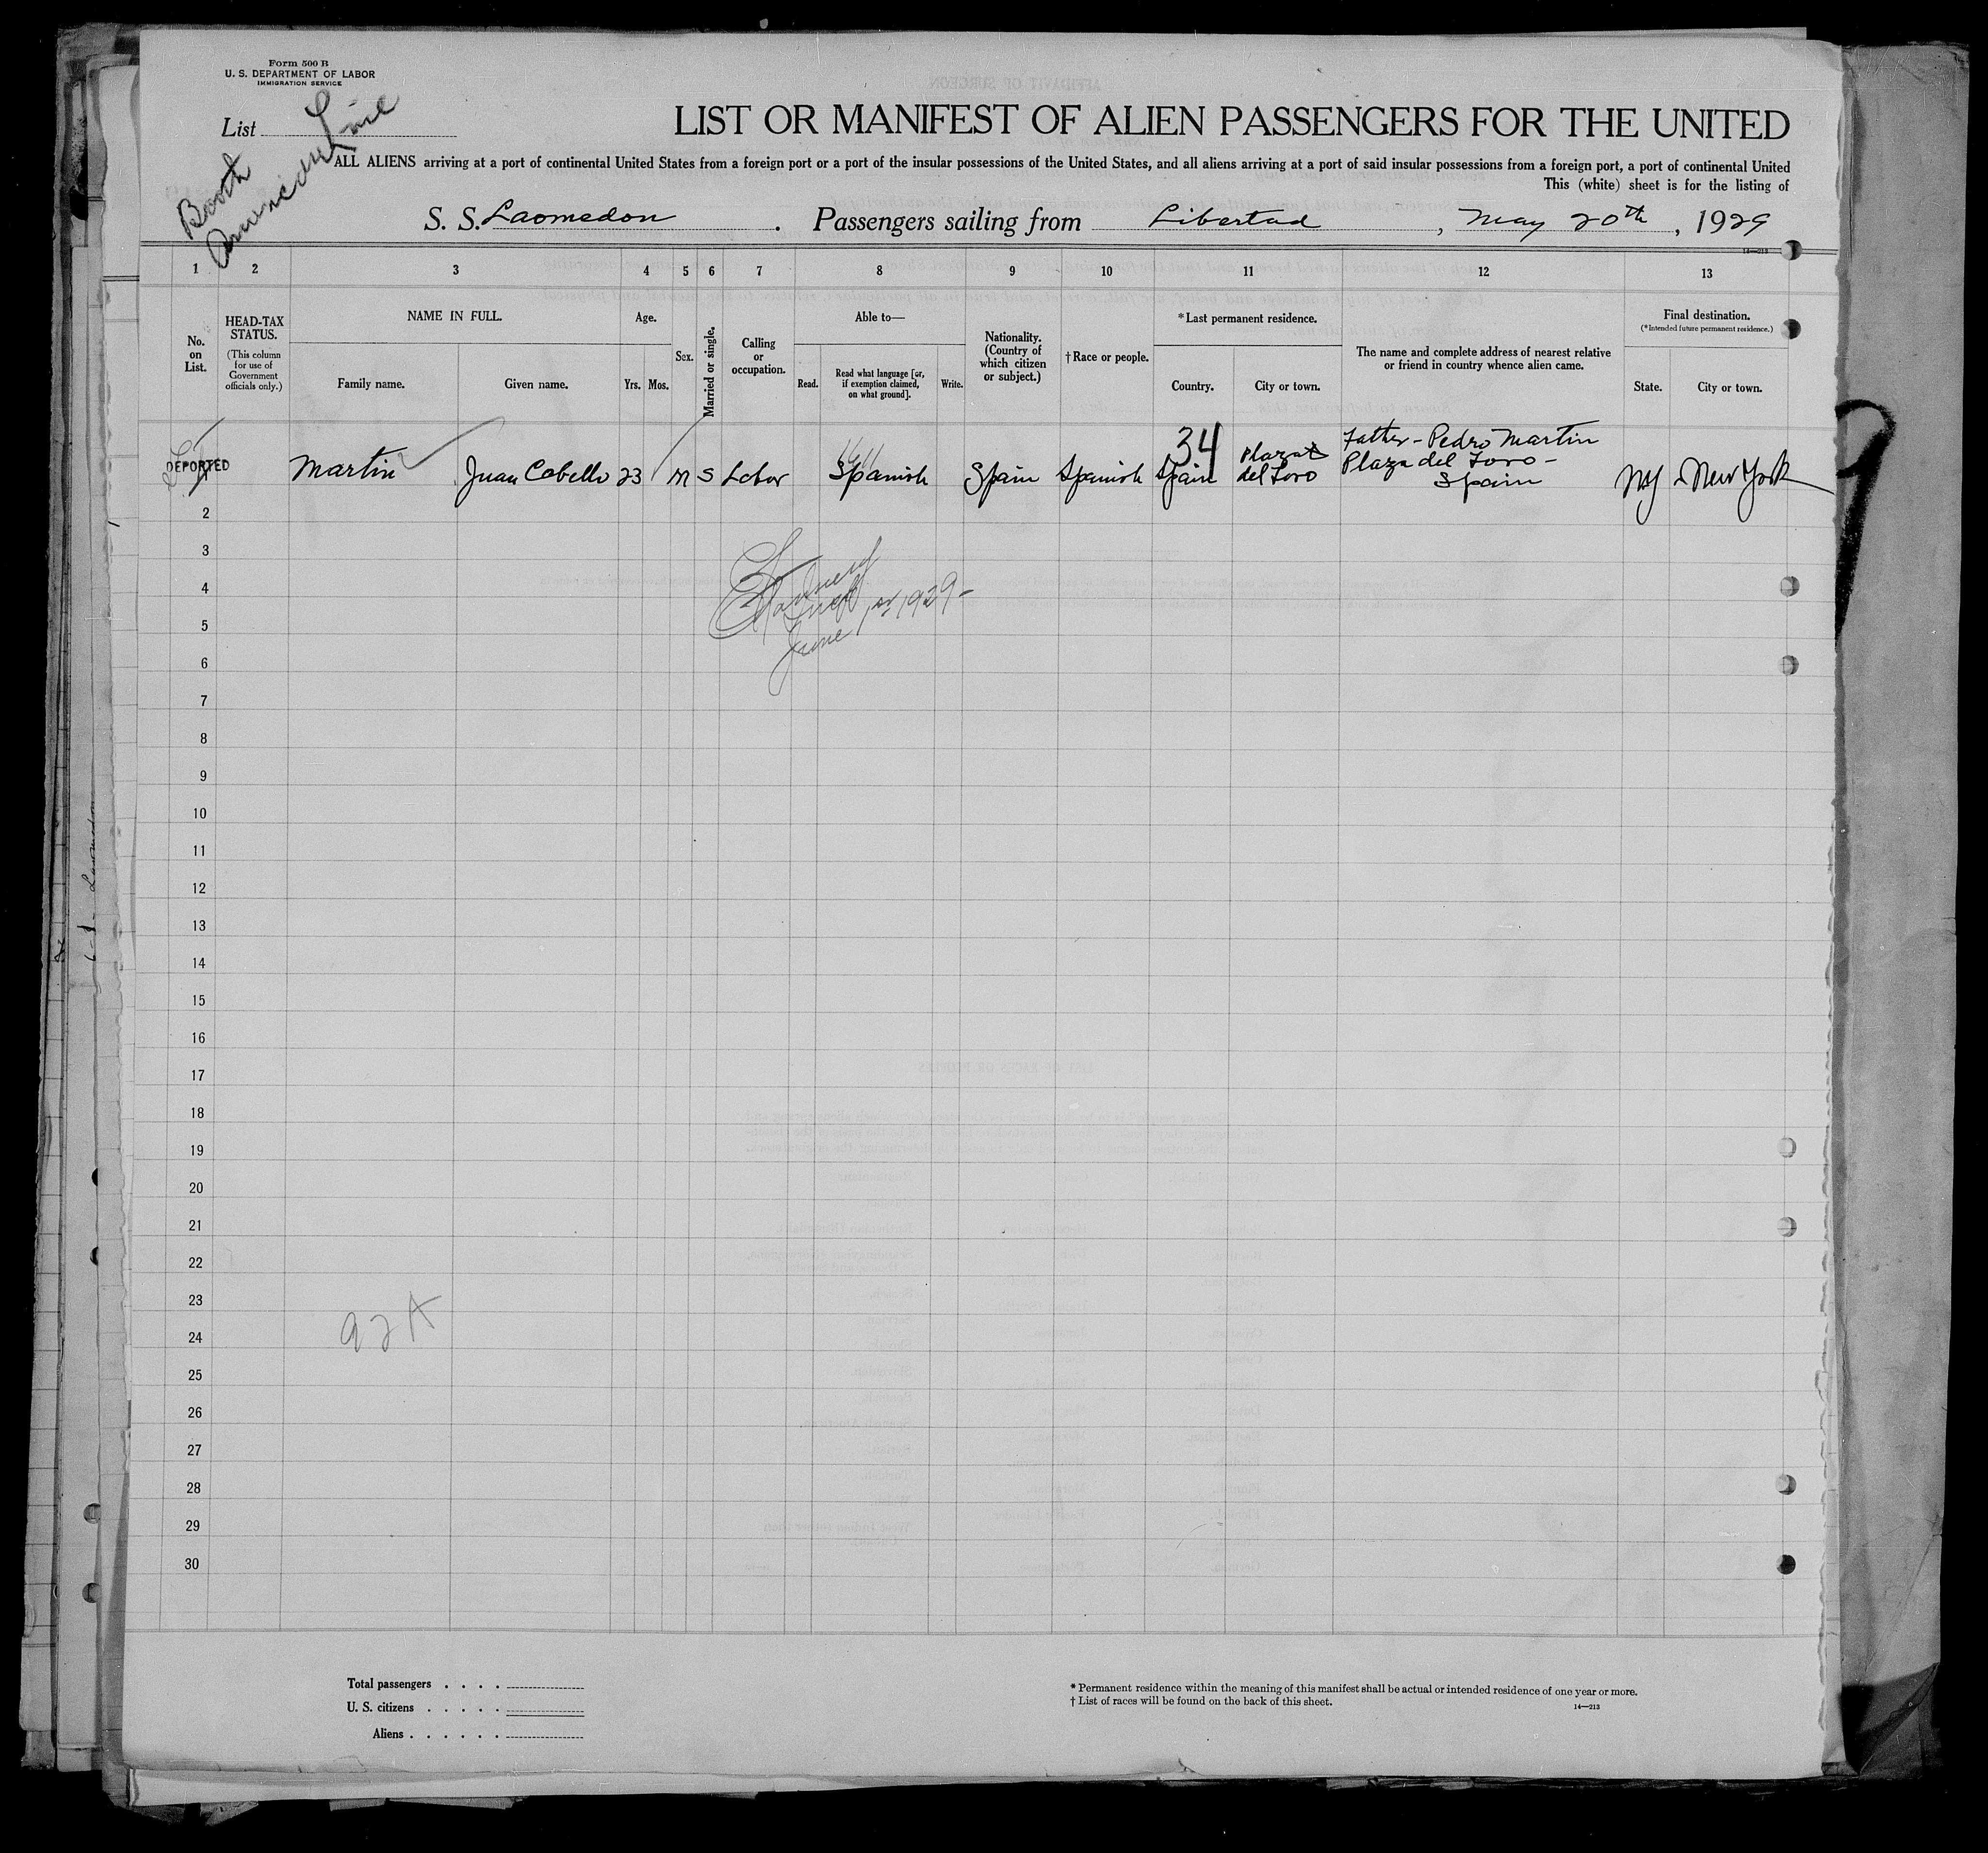 Form 500 B
U. S. DEPARTMENT OF LABOR
IMMIGRATION SERVICE
List
Booth
American Line
LIST OR MANIFEST OF ALIEN PASSENGERS FOR THE UNITED
ALL ALIENS arriving at a port of continental United States from a foreign port or a port of the insular possessions of the United States, and all aliens arriving at a port of said insular possessions from a foreign port, a port of continental United
This (white) sheet is for the listing of
S. S. Laomedon. Passengers sailing from Libertad, May 20th, 1929
14—213
1 2 3 4 5 6 7 8 9 10 11 12 13
No. on List.
HEAD-TAX STATUS.
(This column for use of Government officials only.)
NAME IN FULL.
Family name. Given name.
Age.
Yrs. Mos.
Sex.
Married or single.
Calling or occupation.
Able to—
Read. Read what language [or, if exemption claimed, on what ground]. Write.
Nationality. (Country of which citizen or subject.)
†Race or people.
*Last permanent residence.
Country. City or town.
The name and complete address of nearest relative or friend in country whence alien came.
Final destination.
(*Intended future permanent residence.)
State. City or town.
34
DEPORTED
1 Martin Juan Cabello 23 M S Labor Spanish Spain Spanish Spain Plaza del Toro Father - Pedro Martin Plaza del Toro - Spain NY New York
2
3
4
5
June 1st 1929 -
6
7
8
9
10
11
12
13
14
15
16
17
18
19
20
21
22
23
24
25
26
27
28
29
30
Total passengers . . . .
U. S. citizens . . . . .
Aliens . . . . . .
* Permanent residence within the meaning of this manifest shall be actual or intended residence of one year or more.
† List of races will be found on the back of this sheet.
14—213
Laomedon